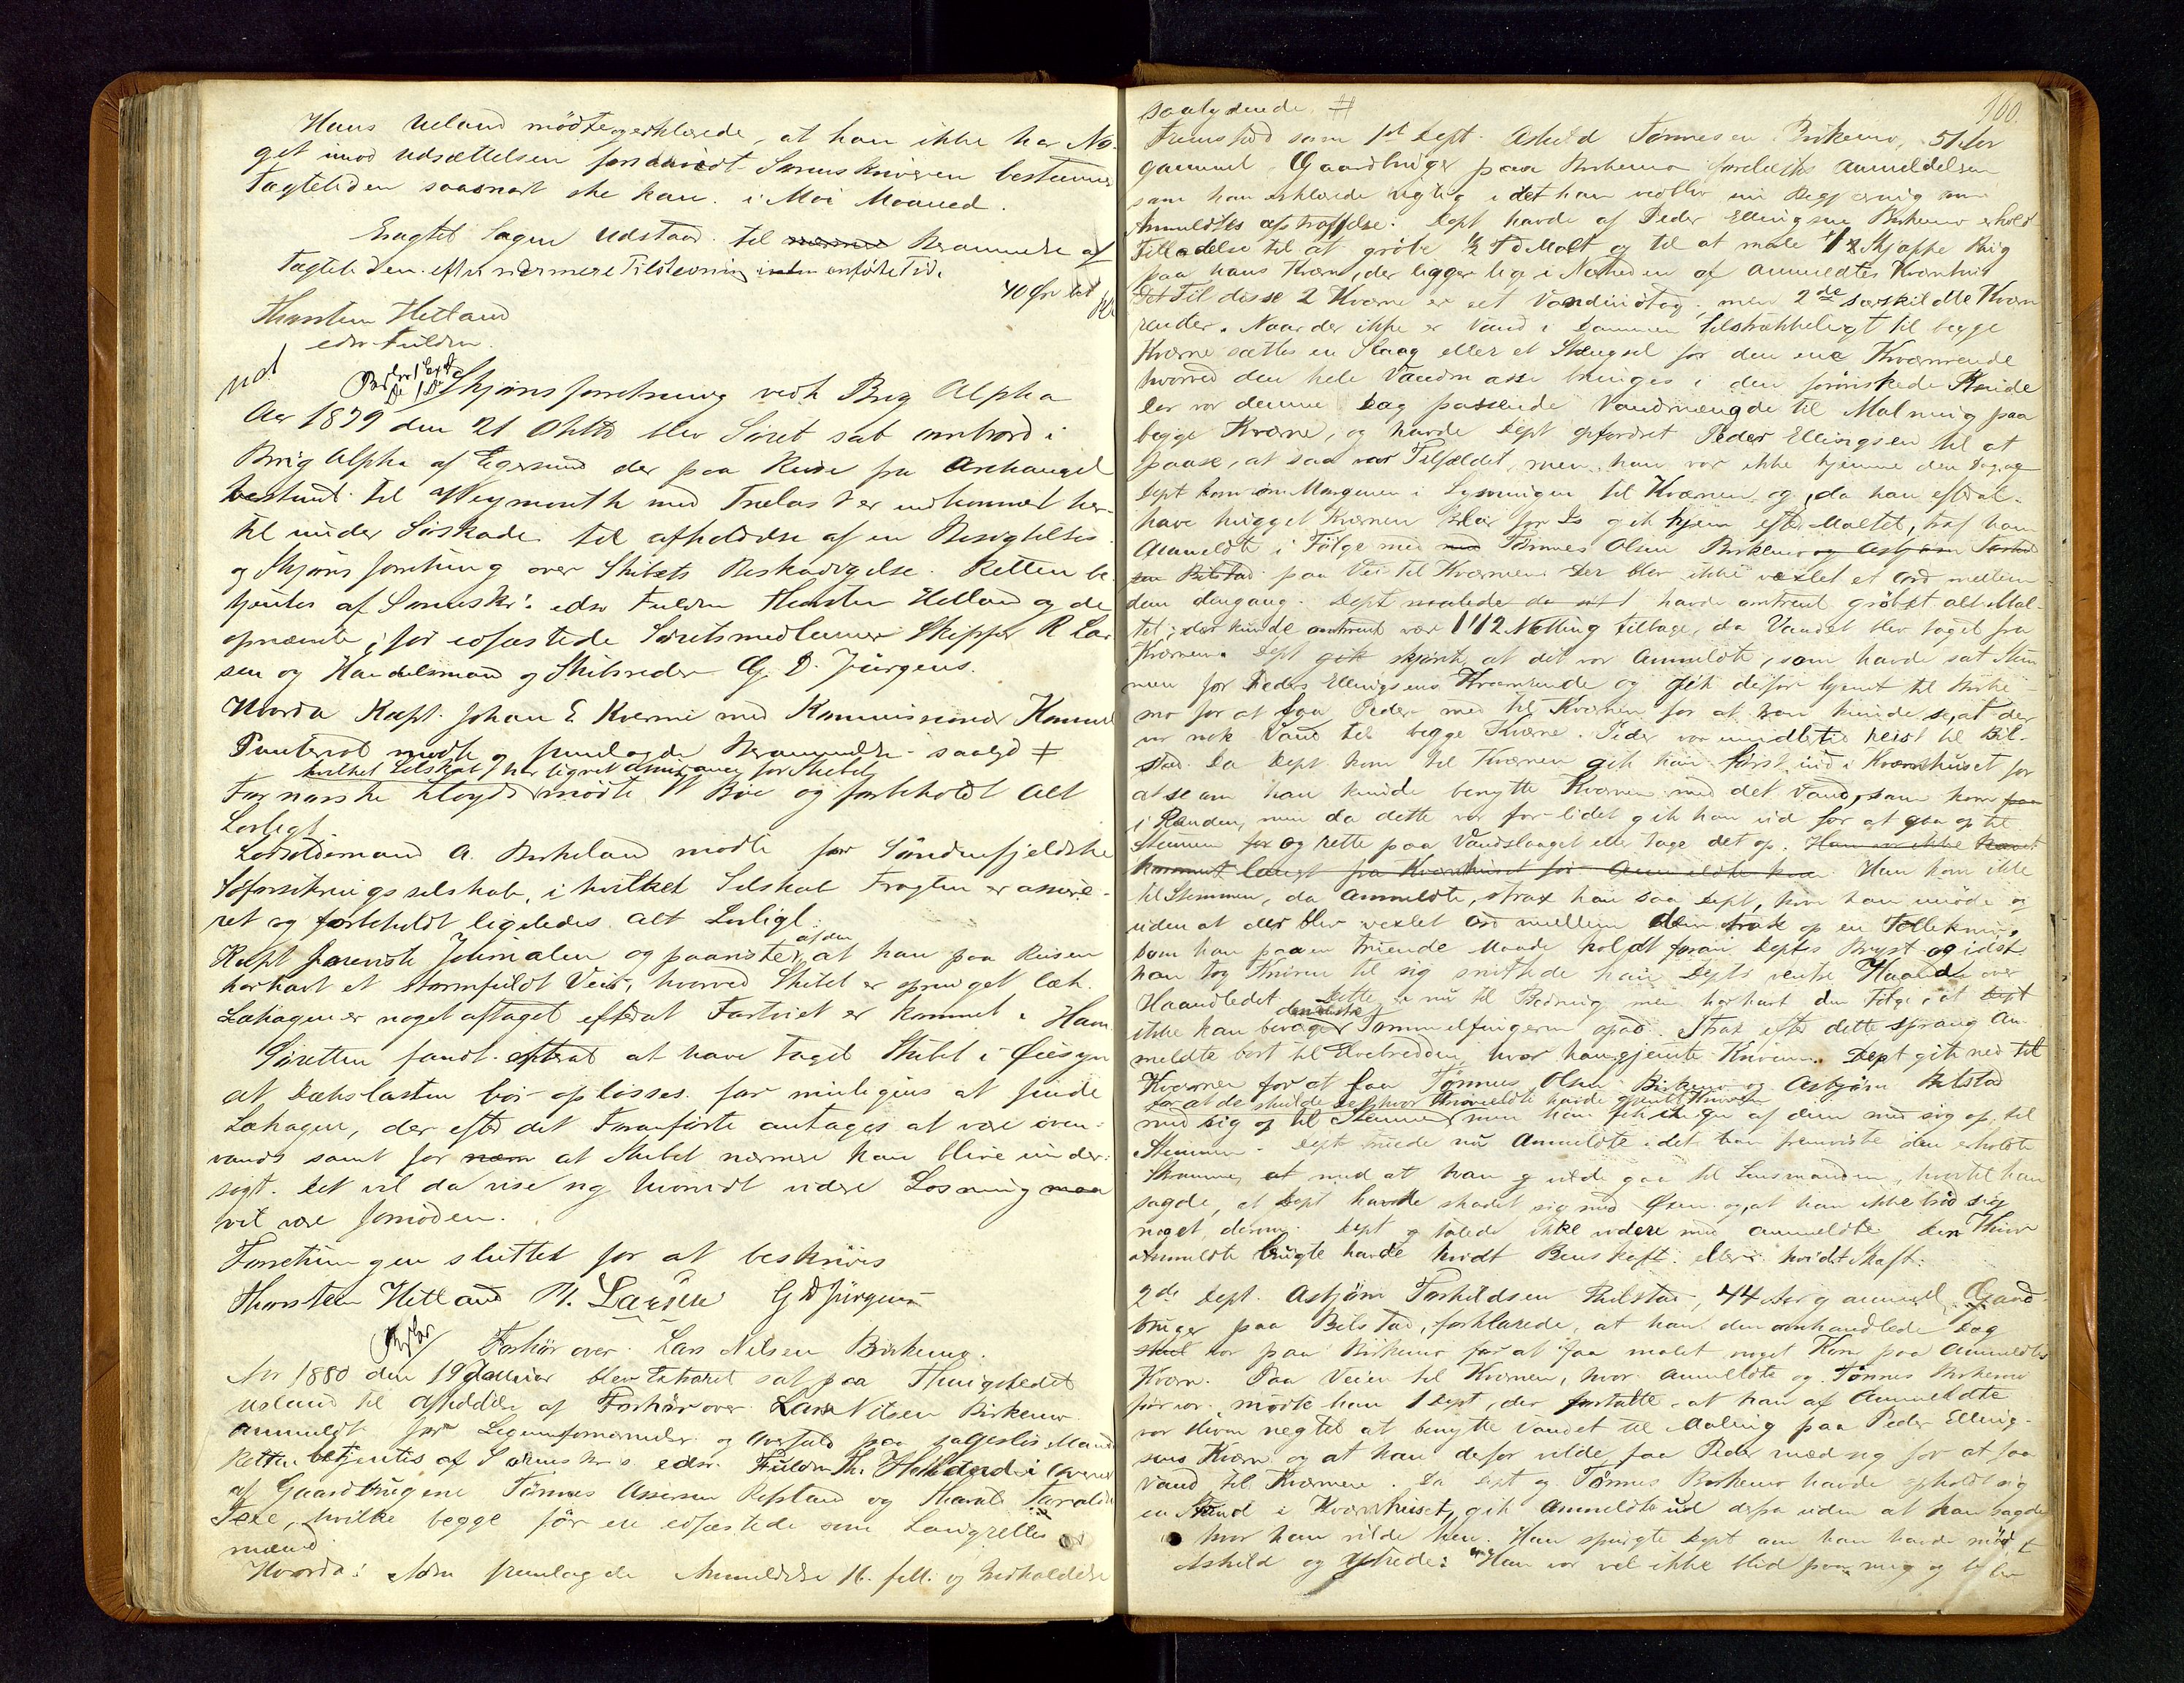 Hans Ueland mødte og erklærede, at han ikke har No-
get imod Udsættelsen forsaavidt Sorenskriveren bestemmer
Tægtetiden saasnart ske kan i Mai Maaned.
Eragtet Sagen Udstaar til Berammelse af
Tægtetiden efter nærmere Tilstevning anførte Tid.
40 Øre bet
Thorsten Hetland
edsv Fuldm.
Skjønsforretning vedk Brig Alpha
Aar 1879 den 21 Oktbr blev Søret sat ombord i
Brig Alpha af Egersund der paa Reise fra Archangel
bestemt til Weymouth med Trælast er indkommet her-
til under Søskade til afholdelse af en Besigtelses
og Skjønsforretning over Skibets Beskadigelse. Retten be-
tjentes af Sorenskr's edsv Fuldm Thorsten Hetland og de
opnævnte, før edfæstede Søretsmedlemmer Skipper R Lar
sen og Handelsmand og Skibsreder G. D. Jürgens.
Hvorda Kapt. Johan E Kverme med Kommissionær Konsul
Puntervol mødte og fremlagde Berammelse saalyd #
hvilket Selskab har tegnet Assurance for Skibet
For norske Lloyd mødte W Bøe og forbeholdt Alt
Lovligt
Lodsoldermand A. Birkeland mødte for Søndenfjeldske
Søforsikringsselskab, i hvilket Selskab Fragten er assure-
ret og forbeholdt ligeledes Alt Lovligt.
Kapt foreviste Journalen og paaviste af den at han paa Reisen
har havt et stormfuldt Veir, hvorved Skibet er sprunget læk.
Lækagen er noget aftaget efterat Fartøiet er kommet i Havn.
Søretten fandt efterat at have taget Skibet i Øiesyn
at Dækslasten bør oplosses for muligens at finde
Lækagen, der efter det Foranførte antages at være oven-
vands samt for at Skibet nærmere kan blive under-
søgt. Det vil da vise sig hvorvidt videre Losning maa
vil være fornøden.
Forretningen sluttet for at beskrives
Thorsten Hetland R. Larsen G D Jürgens
Forhør over Lars Nilsen Birkemo.
Aar 1880 den 19 Januar blev Extraret sat paa Thingstedet
Ueland til Afholdelse af Forhør over Lars Nilsen Birkemo
anmeldt for Legemsfornærmelse og Overfald paa sagesløs Mand
Retten betjentes af Sorenskr's edsv. Fuldm Th. Hetland i Overvær
af Gaardbrugerne Tønnes Assersen Refsland og Tharald
hvilke begge før ere edfæstede som Laugrettes
mænd
Hvorda: Adm fremlagde Anmeldelse 16. f.M. og Indkaldelse
160.
saalydende #
Fremstod som 1st Dept. Askild Tønnesen Birkemo, 51 Aar
gammel Gaardbruger paa Birkemo forelæstes Anmeldelsen
som han erklærede rigtig idet han vedblev sin Begjæring om
Anmeldtes afstraffelse. Dept havde af Peder Ellingsen Birkemo erholdt
Tilladelse til at grøbe 1/2 Td Malt og til at male Skjæppe Rug
paa hans Kværn, der ligger lige i Nærheden af Anmeldtes Kværnhus
Til disse 2 Kværne er eet Vandindtag, men 2de særskildte Kværn
render. Naar der ikke er Vand i Dammen tilstrækkeligt til begge
Kværne sættes en Slaag eller et Stængsel for den ene Kværnrende
hvorved den hele Vandmasse bringes i den fornskede Rende
Der var denne Dag passende Vandmængde til Malning paa
begge Kværne, og havde Dept opfordret Peder Ellingsen til at
paase, at saa var Tilfældet, men han var ikke hjemme den Dag, og
Dept kom om Morgenen i Lysningen til Kværnen, og, da han efterat
have hugget Kværnen klar for Is gik hjem efter Maltet, traf han
Anmeldte i Følge med Tønnes Olsen Birkemo og Asbjørn Torkild
sen Bilstad paa Vei til Kværnen Der blev ikke vexlet et Ord mellem
dem dengang. Dept havde omtrent grøbet alt Mal-
tet; der kunde omtrent var 1 1/2 Notting tilbage, da Vandet blev taget fra
Kværnen. Dept skjønte at det var Anmeldte, som havde sat Stem
men for Peders Ellingsens Kværnrende og gik derfor hjem til Birke-
mo for at faa Peder med til Kværnen for at han kunde se, at der
var nok Vand til begge Kværne. Peder var imidlertid reist til Bil-
stad. Da Dept kom til Kværnen gik han først ind i Kværnhuset for
at se om han kunde benytte Kværnen med det Vand, som kom
i Renden, men da dette var for lidet gik han ud for at gaa op til
Stemmen for og rette paa Vandslaaget eller tage det op. Han var ikke
kommet langt fra Kværnhuset før Anmeldte kom Han kom ikke
til Stemmen, da Anmeldte, strax han saa Dept, kom ham imøde og
uden at der blev vexlet Ord mellem dem trak op en Tollekniv,
som han paa en truende Maade holdt foran Deptes Bryst og idet
han tog Kniven til sig snittede han Depts venstre Haand over
Haandledet Dette er nu til Bedring men har havt den Følge, at Dept
ikke kan bevæge Tommelfingeren opad. Strax efter dette sprang An-
meldte bort til Elvebredden hvor han gjemte Kniven. Dept gik ned til
Kværnen for at faa Tønnes Olsen Birkemo og Asbjørn Bilstad
for at de skulde se, hvor Anmeldte havde gjemt Kniven
med sig op til Stemmen men han fik ingen af dem med sig op til
Stemmen. Dept truede nu Anmeldte idet han fremviste den erholdte
Skramme, med at han vilde gaa til Lensmanden, hvortil han
sagde, at Dept havde skadet sig med Øxen og at han ikke brød sig
noget derom. Dept talede ikke videre med Anmeldte. Den Kniv
Anmeldte brugte havde hvidt Benskaft eller hvidt Skaft.
2de Dept. Asbjørn Torkildsen Bilstad, 44 Aar gammel, Gaard-
bruger paa Bilstad, forklarede, at han den omhandlede Dag
var paa Birkemo for at faa malet noget Korn paa Anmeldtes
Kværn. Paa Veien til Kværnen, hvor Anmeldte og Tønnes Birkemo
før var, mødte han 1 Dept, der fortalte, at han af Anmeldte
var bleven negtet at benytte Vandet til Maling paa Peder Elling-
sens Kværn og at han derfor vilde faa Peder med sig for at faa
Vand til Kværnen. Da Dept og Tønnes Birkemo havde opholdt sig
en Stund i Kværnhuset, gik Anmeldte ud derfra uden at han sagde
hvor han vilde hen. Han spurgte Dept om han havde mødt
Askild og yttrede: "Han var vel ikke blid paa mig og